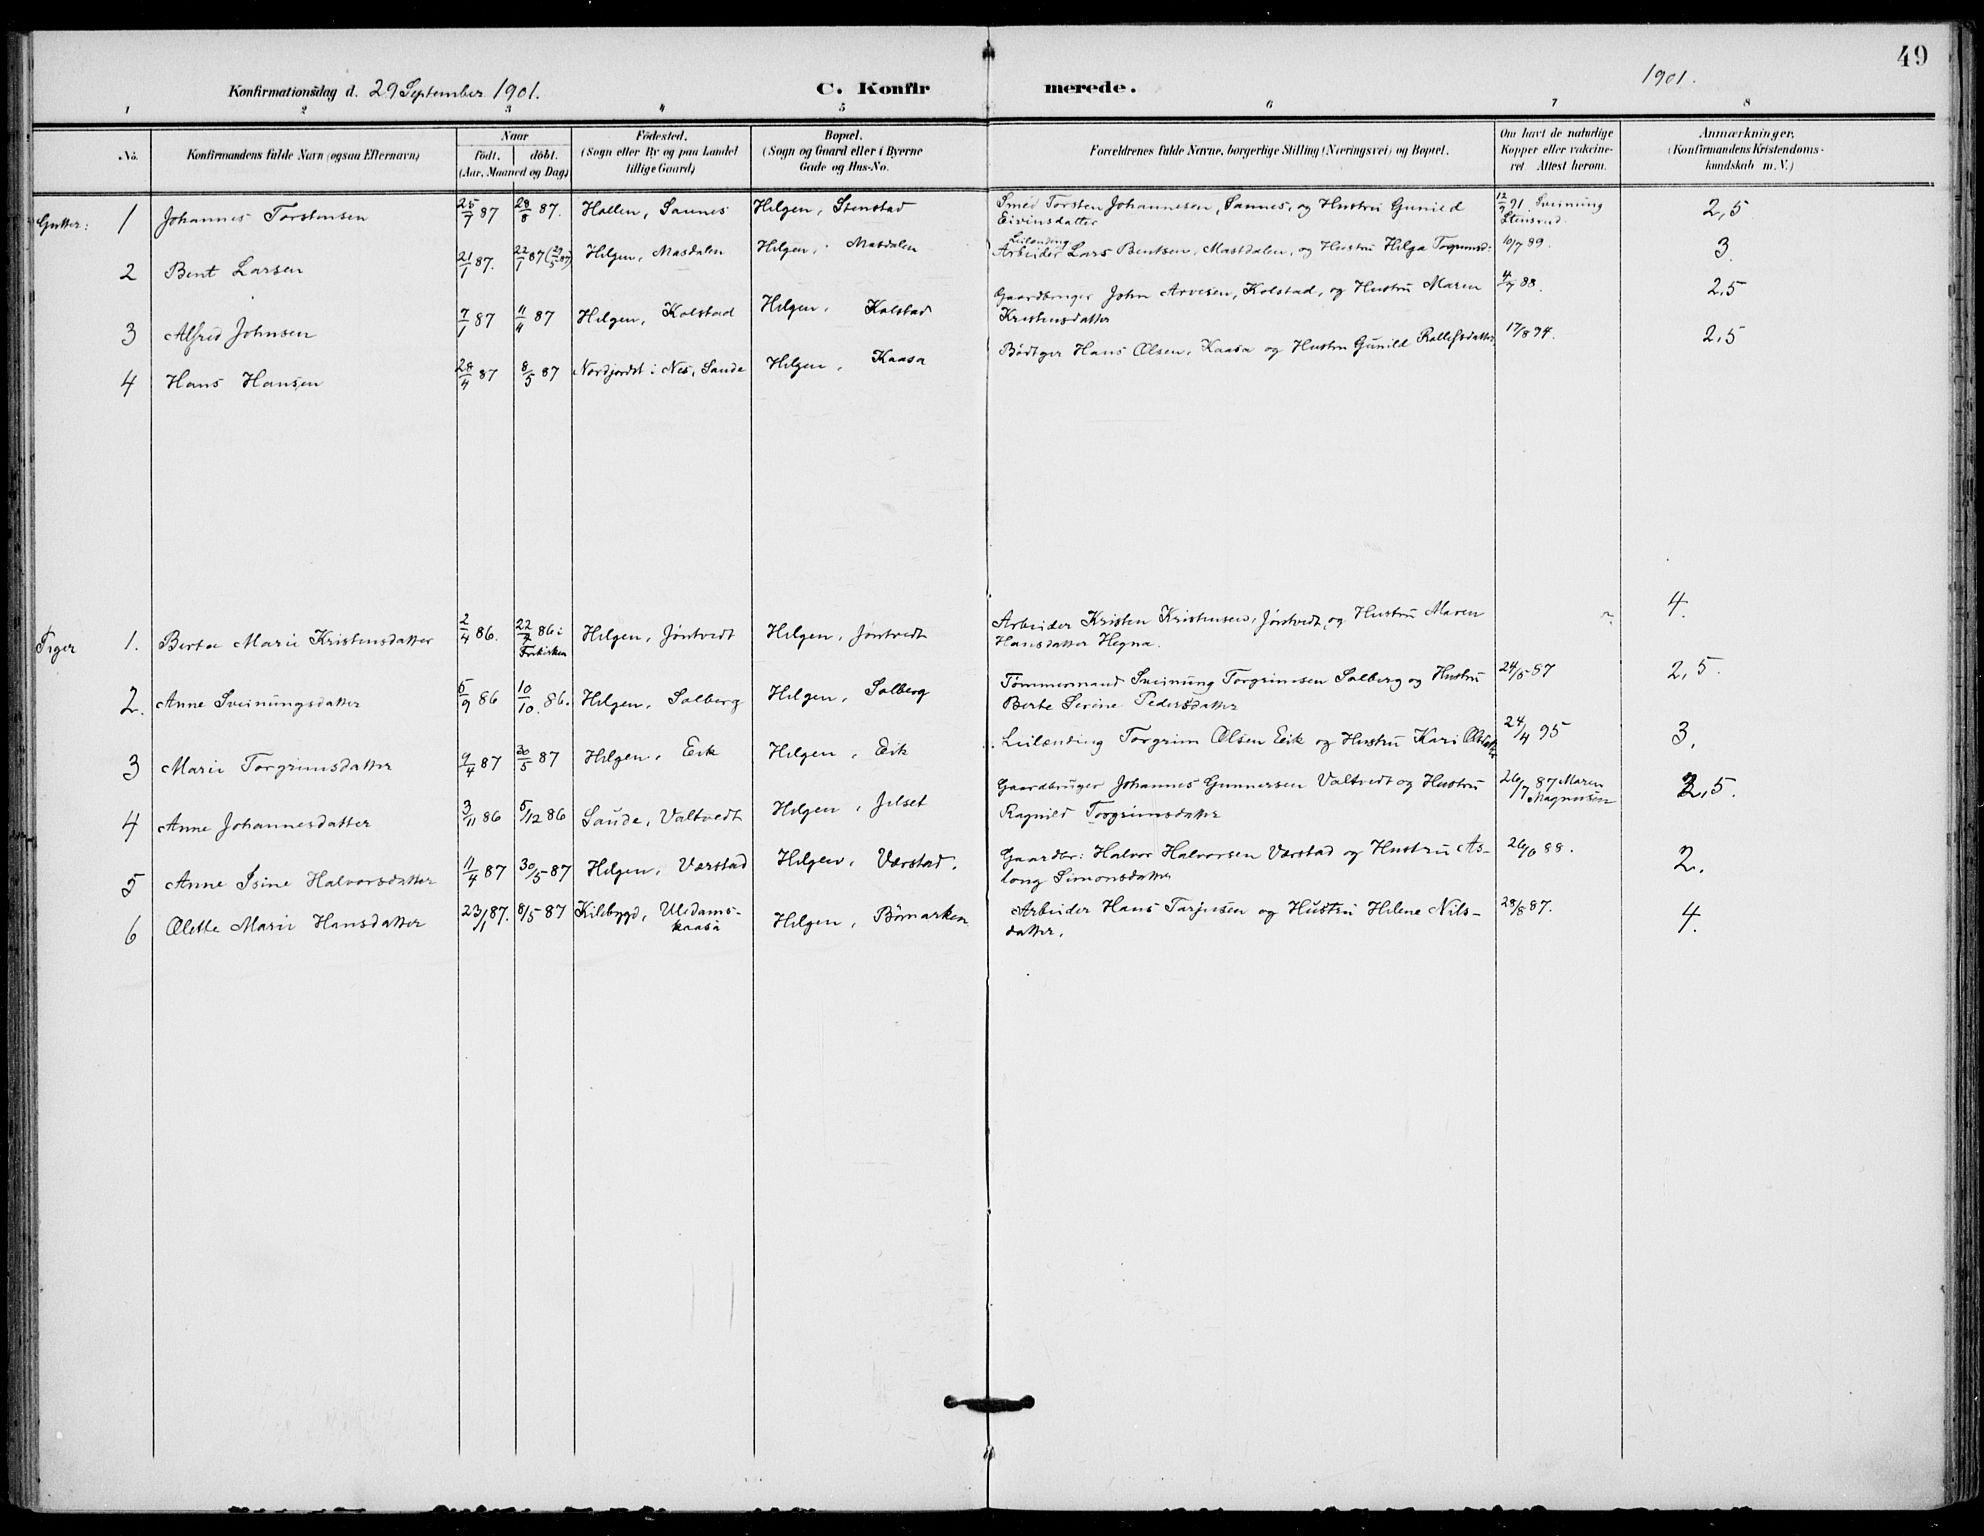 49
Konfirmationsdag d. 29 September 1901. C. Konfirmerede. 1901.
1 2 3 4 5 6 7 8
No. Konfirmandens fulde Navn (ogsaa Efternavn) Naar født. døbt. (Aar, Maaned og Dag) Fødested. (Sogn eller By og paa Landet tillige Gaard) Bopæl. (Sogn og Gaard eller i Byerne Gade og Hus-No. Forældrenes fulde Navne, borgerlige Stilling (Næringsvei) og Bopæl. Om havt de naturlige Kopper eller vakcineret Attest herom. Anmærkninger. (Konfirmandens Kristendomskundskab m. V.)
Gutter: 1 Johannes Torstensen 25/7 87 28/8 87. Hollen, Sannes Helgen, Stenstad Smed Torsten Johannesen, Sannes, og Hustru Gunild Eivinsdatter 12/9 91 Sveinung Stensrud. 2,5
2 Bent Larsen 21/1 87. 22/1 87 (29/5 87) Helgen, Masdalen Helgen, Masdalen Leilænding Arbeider Lars Bentsen, Mastdalen, og Hustru Helga Togrimsd: 10/7 89. 3.
3 Alfred Johnsen 7/1 87 11/4 87 Helgen, Kolstad Helgen, Kolstad Gaardbruger John Arvesen, Kolstad, og Hustru Maren Kristensdatter 4/7 88. 2,5
4 Hans Hansen 28/4 87 8/5 87 Nordjordet i Nes, Saude Helgen, Kaasa Bødtger Hans Olsen, Kaasa og Hustru Gunild Rollefsdatter 17/8 94. 2,5
Piger 1. Berte Marie Kristensdatter 2/4 86. 22/7 86 i Frikirken Helgen, Jøntvedt Helgen, Jøntvedt Arbeider Kristen Kristensen, Jøntvedt, og Hustru Maren Hansdatter Hegna. 4.
2. Anne Sveinungsdatter 5/9 86 10/10 86. Helgen, Solberg Helgen, Solberg Tømmermand Sveinung Torgrimsen Solberg og Hustru Berte Serine Pedersdatter 24/5 87 2,5.
3 Marie Torgrimsdatter 9/4 87 30/5 87 Helgen, Eik Helgen, Eik Leilænding Torgrim Olsen Eik og Hustru Kari Olsdatter 24/4 95 3,
4 Anne Johannesdatter 3/11 86 5/12 86 Saude, Valtvedt Helgen, Jelset Gaardbruger Johannes Gunnersen Valtvedt og Hustru Ragnild Torgrimsdatter 26/7 87 Maren Magnusen 2,5.
5 Anne Isine Halvorsdatter 11/4 87 30/5 87 Helgen, Værstad Helgen, Værstad. Gaardbr: Halvor Halvorsen Værstad og Hustru Aslong Simonsdatter 26/6 88. 2.
6 Olette Marie Hansdatter 23/1 87. 8/5 87 Kilebygd, Ulsdamskaasa Helgen, Bømarken Arbeider Hans Tarjusen og Hustru Helene Nilsdatter, 28/8 87. 4.